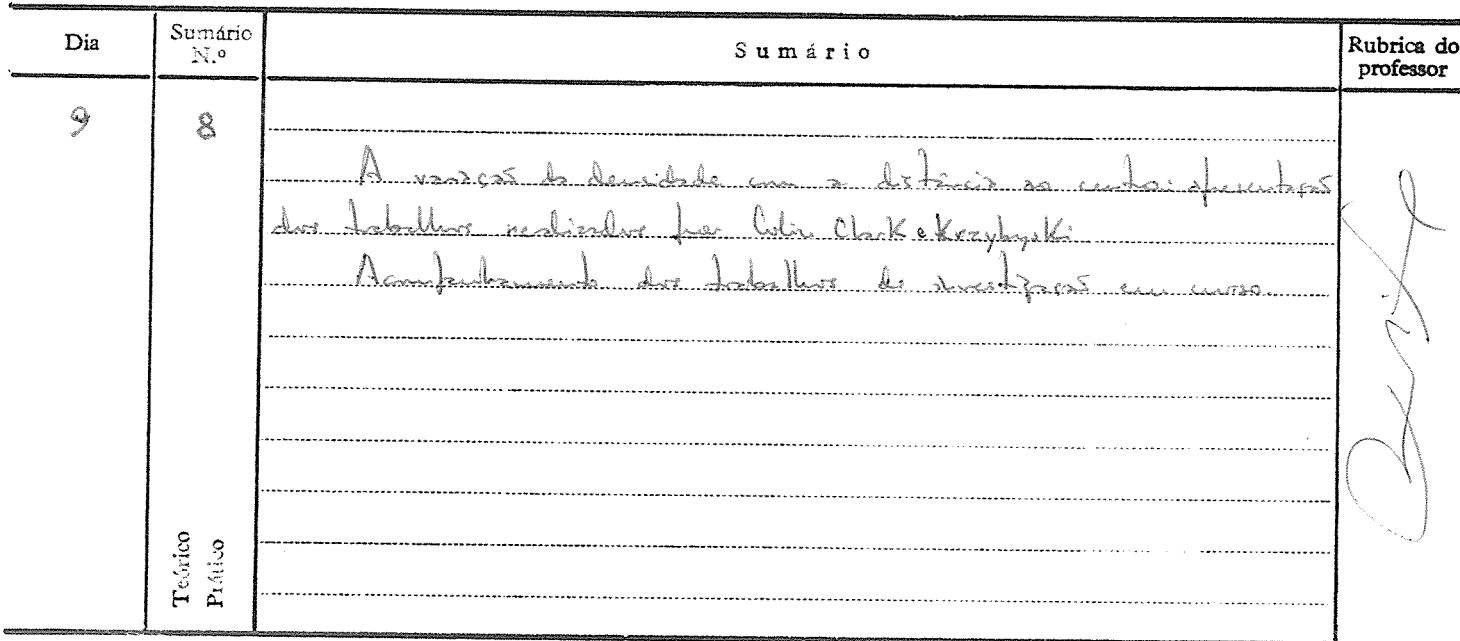 Dia
Sumário N.º
Sumário
Rubrica do professor
9
8
A variação da densidade com a distância ao centro: apresentação
dos trabalhos realizados por Colin Clark e Krzybyski
Acompanhamento dos trabalhos de investigação em curso.
Teórico
Prático